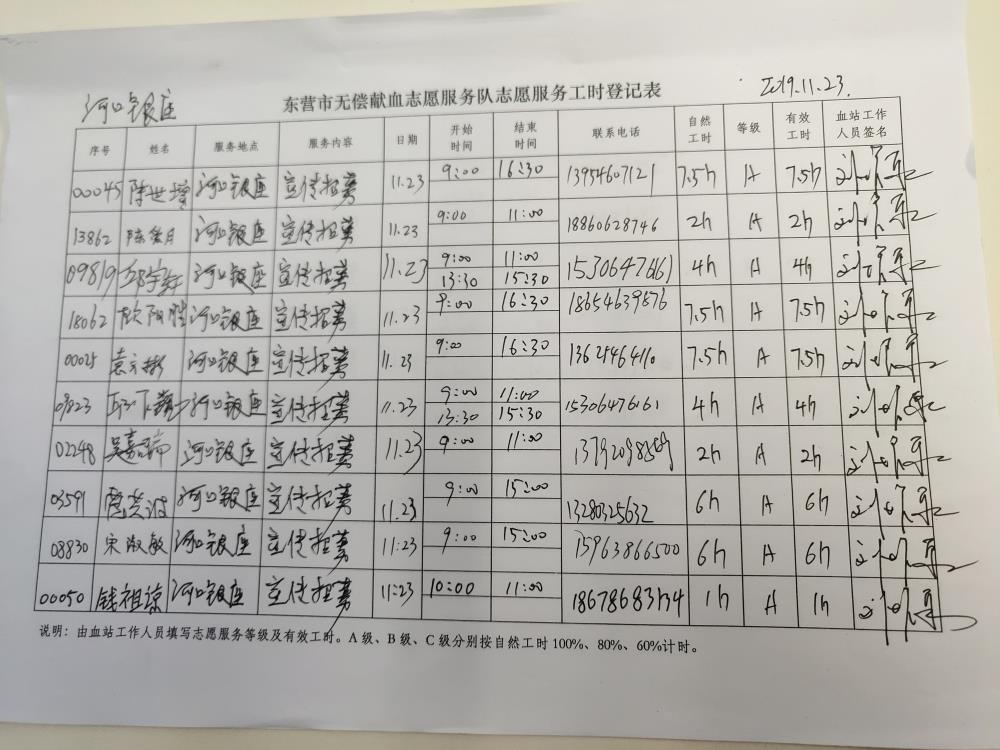 河口银座
2019.11.23.
东营市无偿献血志愿服务队志愿服务工时登记表
序号 姓名 服务地点 服务内容 日期 开始时间 结束时间 联系电话 自然工时 等级 有效工时 血站工作人员签名
00045 陈世增 河口银座 宣传招募 11.23 9:00 16:30 13954607121 7.5h A 7.5h
13862 河口银座 宣传招募 11.23 9:00 11:00 18860628746 2h A 2h
09819 河口银座 宣传招募 11.23 9:00 11:00 4h A 4h
13:30 15:30
18062 欧阳胜 河口银座 宣传招募 11.23 9:00 16:30 18654639576 7.5h A 7.5h
00025 河口银座 宣传招募 11.23 9:00 16:30 13625464110 7.5h A 7.5h
09823 河口银座 宣传招募 11.23 9:00 11:00 15306476161 4h A 4h
13:30 15:30
02248 河口银座 宣传招募 11.23 9:00 11:00 2h A 2h
03591 河口银座 宣传招募 11.23 9:00 15:00 13280325632 6h A 6h
08830 宋淑敏 河口银座 宣传招募 11:23 9:00 15:00 15963866500 6h A 6h
00050 钱祖谅 河口银座 宣传招募 11:23 10:00 11:00 1h A 1h
说明：由血站工作人员填写志愿服务等级及有效工时。A级、B级、C级分别按自然工时100%、80%、60%计时。